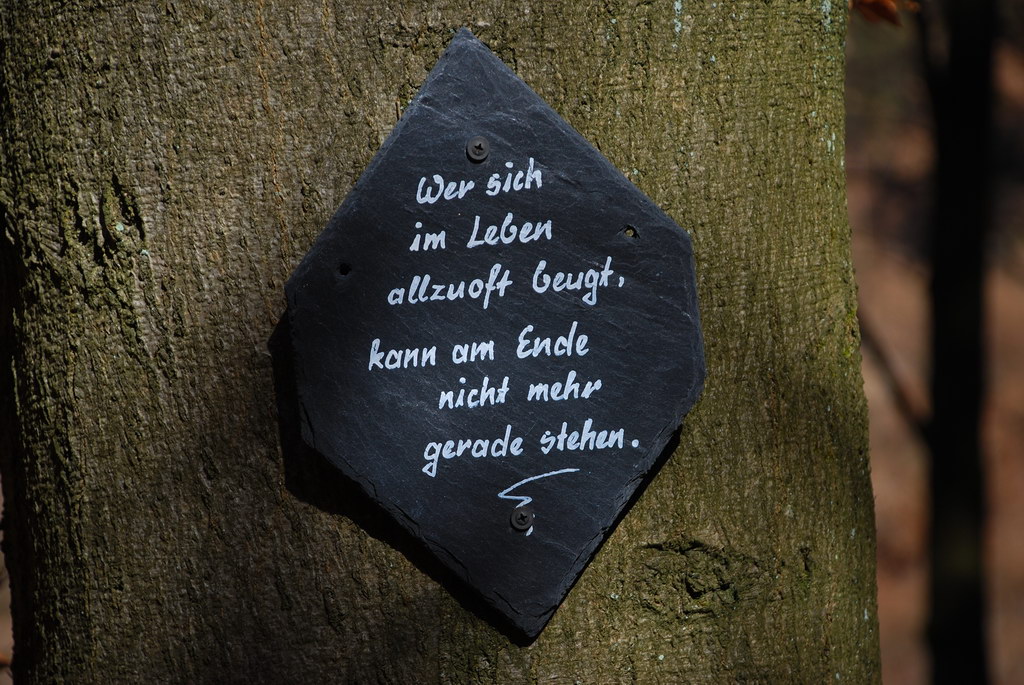 Wer sich
im Leben
allzuoft beugt,
kann am Ende
nicht mehr
gerade stehen.